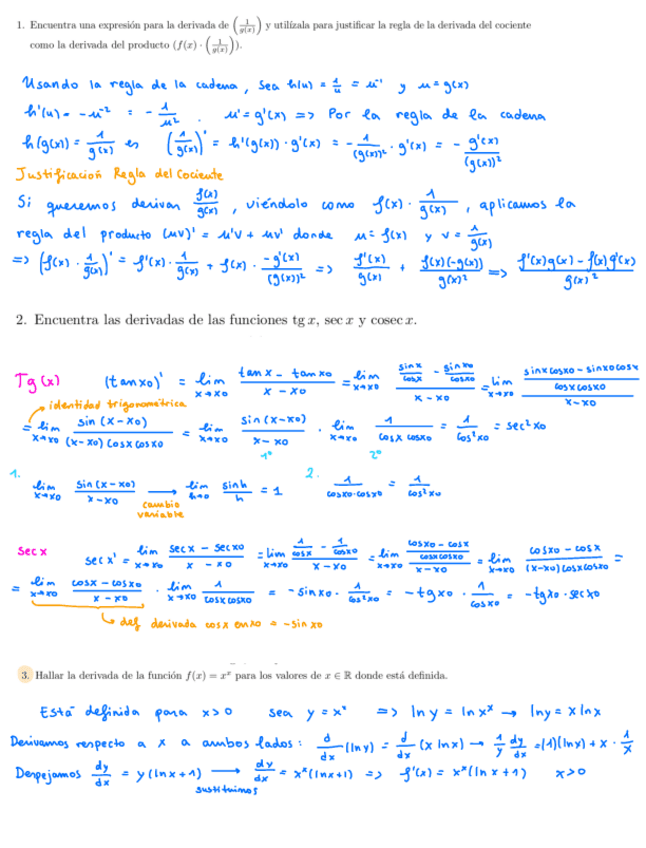 1. Encuentra una expresión para la derivada de (1/g(x)) y utilízala para justificar la regla de la derivada del cociente
como la derivada del producto (f(x) · (1/g(x))).
Usando la regla de la cadena, sea h(u) = 1/u = u⁻¹ y u = g(x)
h'(u) = -u⁻² = - 1/u² . u' = g'(x) => Por la regla de la cadena
h(g(x)) = 1/g(x) es (1/g(x))' = h'(g(x)) · g'(x) = - 1/(g(x))² · g'(x) = - g'(x)/(g(x))²
Justificación Regla del Cociente
Si queremos derivar f(x)/g(x) , viéndolo como f(x) · 1/g(x) , aplicamos la
regla del producto (uv)' = u'v + uv' donde u = f(x) y v = 1/g(x)
=> (f(x) · 1/g(x))' = f'(x) · 1/g(x) + f(x) · -g'(x)/(g(x))² => f'(x)/g(x) + f(x)(-g(x))/g(x)² => f'(x)g(x) - f(x)g'(x)/g(x)²
2. Encuentra las derivadas de las funciones tg x, sec x y cosec x.
Tg(x) (tan x0)' = lim x→x0 tan x - tan x0 / x - x0 = lim x→x0 sin x/cos x - sin x0/cos x0 / x - x0 = lim x→x0 sin x cos x0 - sin x0 cos x / cos x cos x0 / x - x0
identidad trigonométrica
= lim x→x0 sin(x - x0) / (x - x0) cos x cos x0 = lim x→x0 sin(x - x0) / x - x0 · lim x→x0 1 / cos x cos x0 = 1/cos² x0 = sec² x0
1º 2º
1. lim x→x0 sin(x - x0) / x - x0 → lim h→0 sin h / h = 1 2. 1 / cos x0 · cos x0 = 1 / cos² x0
cambio
variable
Sec x sec x' = lim x→x0 sec x - sec x0 / x - x0 = lim x→x0 1/cos x - 1/cos x0 / x - x0 = lim x→x0 cos x0 - cos x / cos x cos x0 / x - x0 = lim x→x0 cos x0 - cos x / (x - x0) cos x cos x0 =
= lim x→x0 cos x - cos x0 / x - x0 · lim x→x0 1 / cos x cos x0 = - sin x0 · 1/cos² x0 = - tg x0 · 1/cos x0 = - tg x0 · sec x0
def derivada cos x en x0 = - sin x0
3. Hallar la derivada de la función f(x) = xˣ para los valores de x ∈ ℝ donde está definida.
Está definida para x > 0 sea y = xˣ => ln y = ln xˣ → ln y = x ln x
Derivamos respecto a x a ambos lados: d/dx (ln y) = d/dx (x ln x) → 1/y dy/dx = (1)(ln x) + x · 1/x
Despejamos dy/dx = y(ln x + 1) → dy/dx = xˣ(ln x + 1) => f'(x) = xˣ(ln x + 1) x > 0
sustituimos